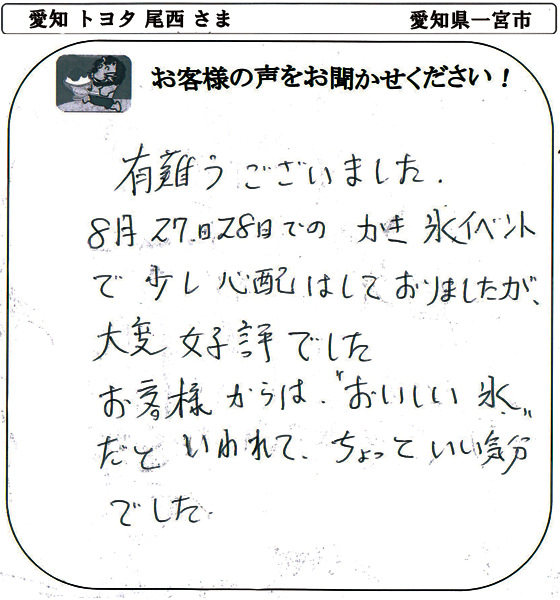 愛知 トヨタ 尾西 さま 愛知県一宮市
お客様の声をお聞かせください！
有難うございました.
8月27.日28日での かき氷イベント
で 少し心配はしておりましたが、
大変 好評でした
お客様からは、"おいしい氷"
だと いわれて、ちょっといい気分
でした.